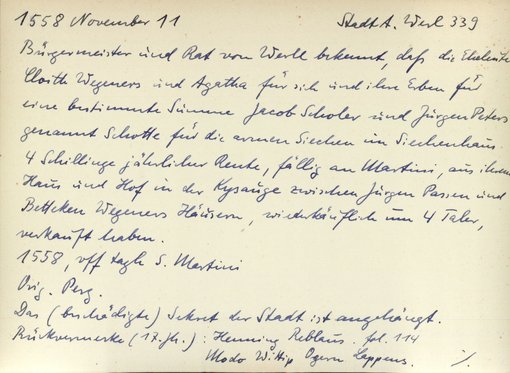 1558 November 11 Stadt A. Werl 339
Bürgermeister und Rat von Werll bekennt, daß die Eheleute
Cloith Wegeners und Agatha für sich und ihre Erben für
eine bestimmte Summe Jacob Scholer und Jürgen Peters
genannt Schotte für die armen Siechen im Siechenhaus
4 Schillinge jährlicher Rente, fällig an Martini, aus ihrem
Haus und Hof in der Kysauge zwischen Jürgen Passen und
Betteken Wegeners Häusern, wiederkäuflich um 4 Taler,
verkauft haben.
1558, vff tagh S. Martini
Orig. Perg.
Das (beschädigte) Sekret der Stadt ist angehängt.
Rückvermerke (17. Jh.): Henning Reblaus. fol. 114
Modo Lappens. ./.